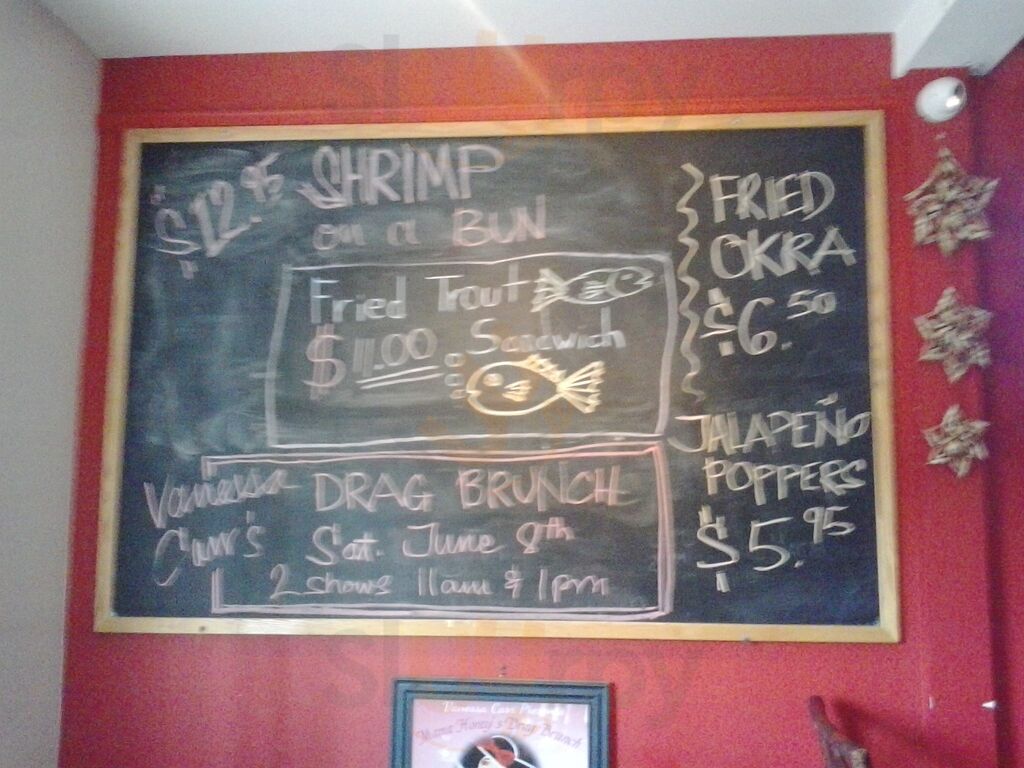 $12.95 SHRIMP
on a BUN
Fried Trout
$11.00 Sandwich
Vanessa DRAG BRUNCH
Carr's Sat. June 8th
2 shows 11am & 1pm
FRIED
OKRA
$6.50
JALAPEÑO
POPPERS
$5.95
Vanessa Carr
Mama Honey's Drag Brunch
Slurpy
Slurpy